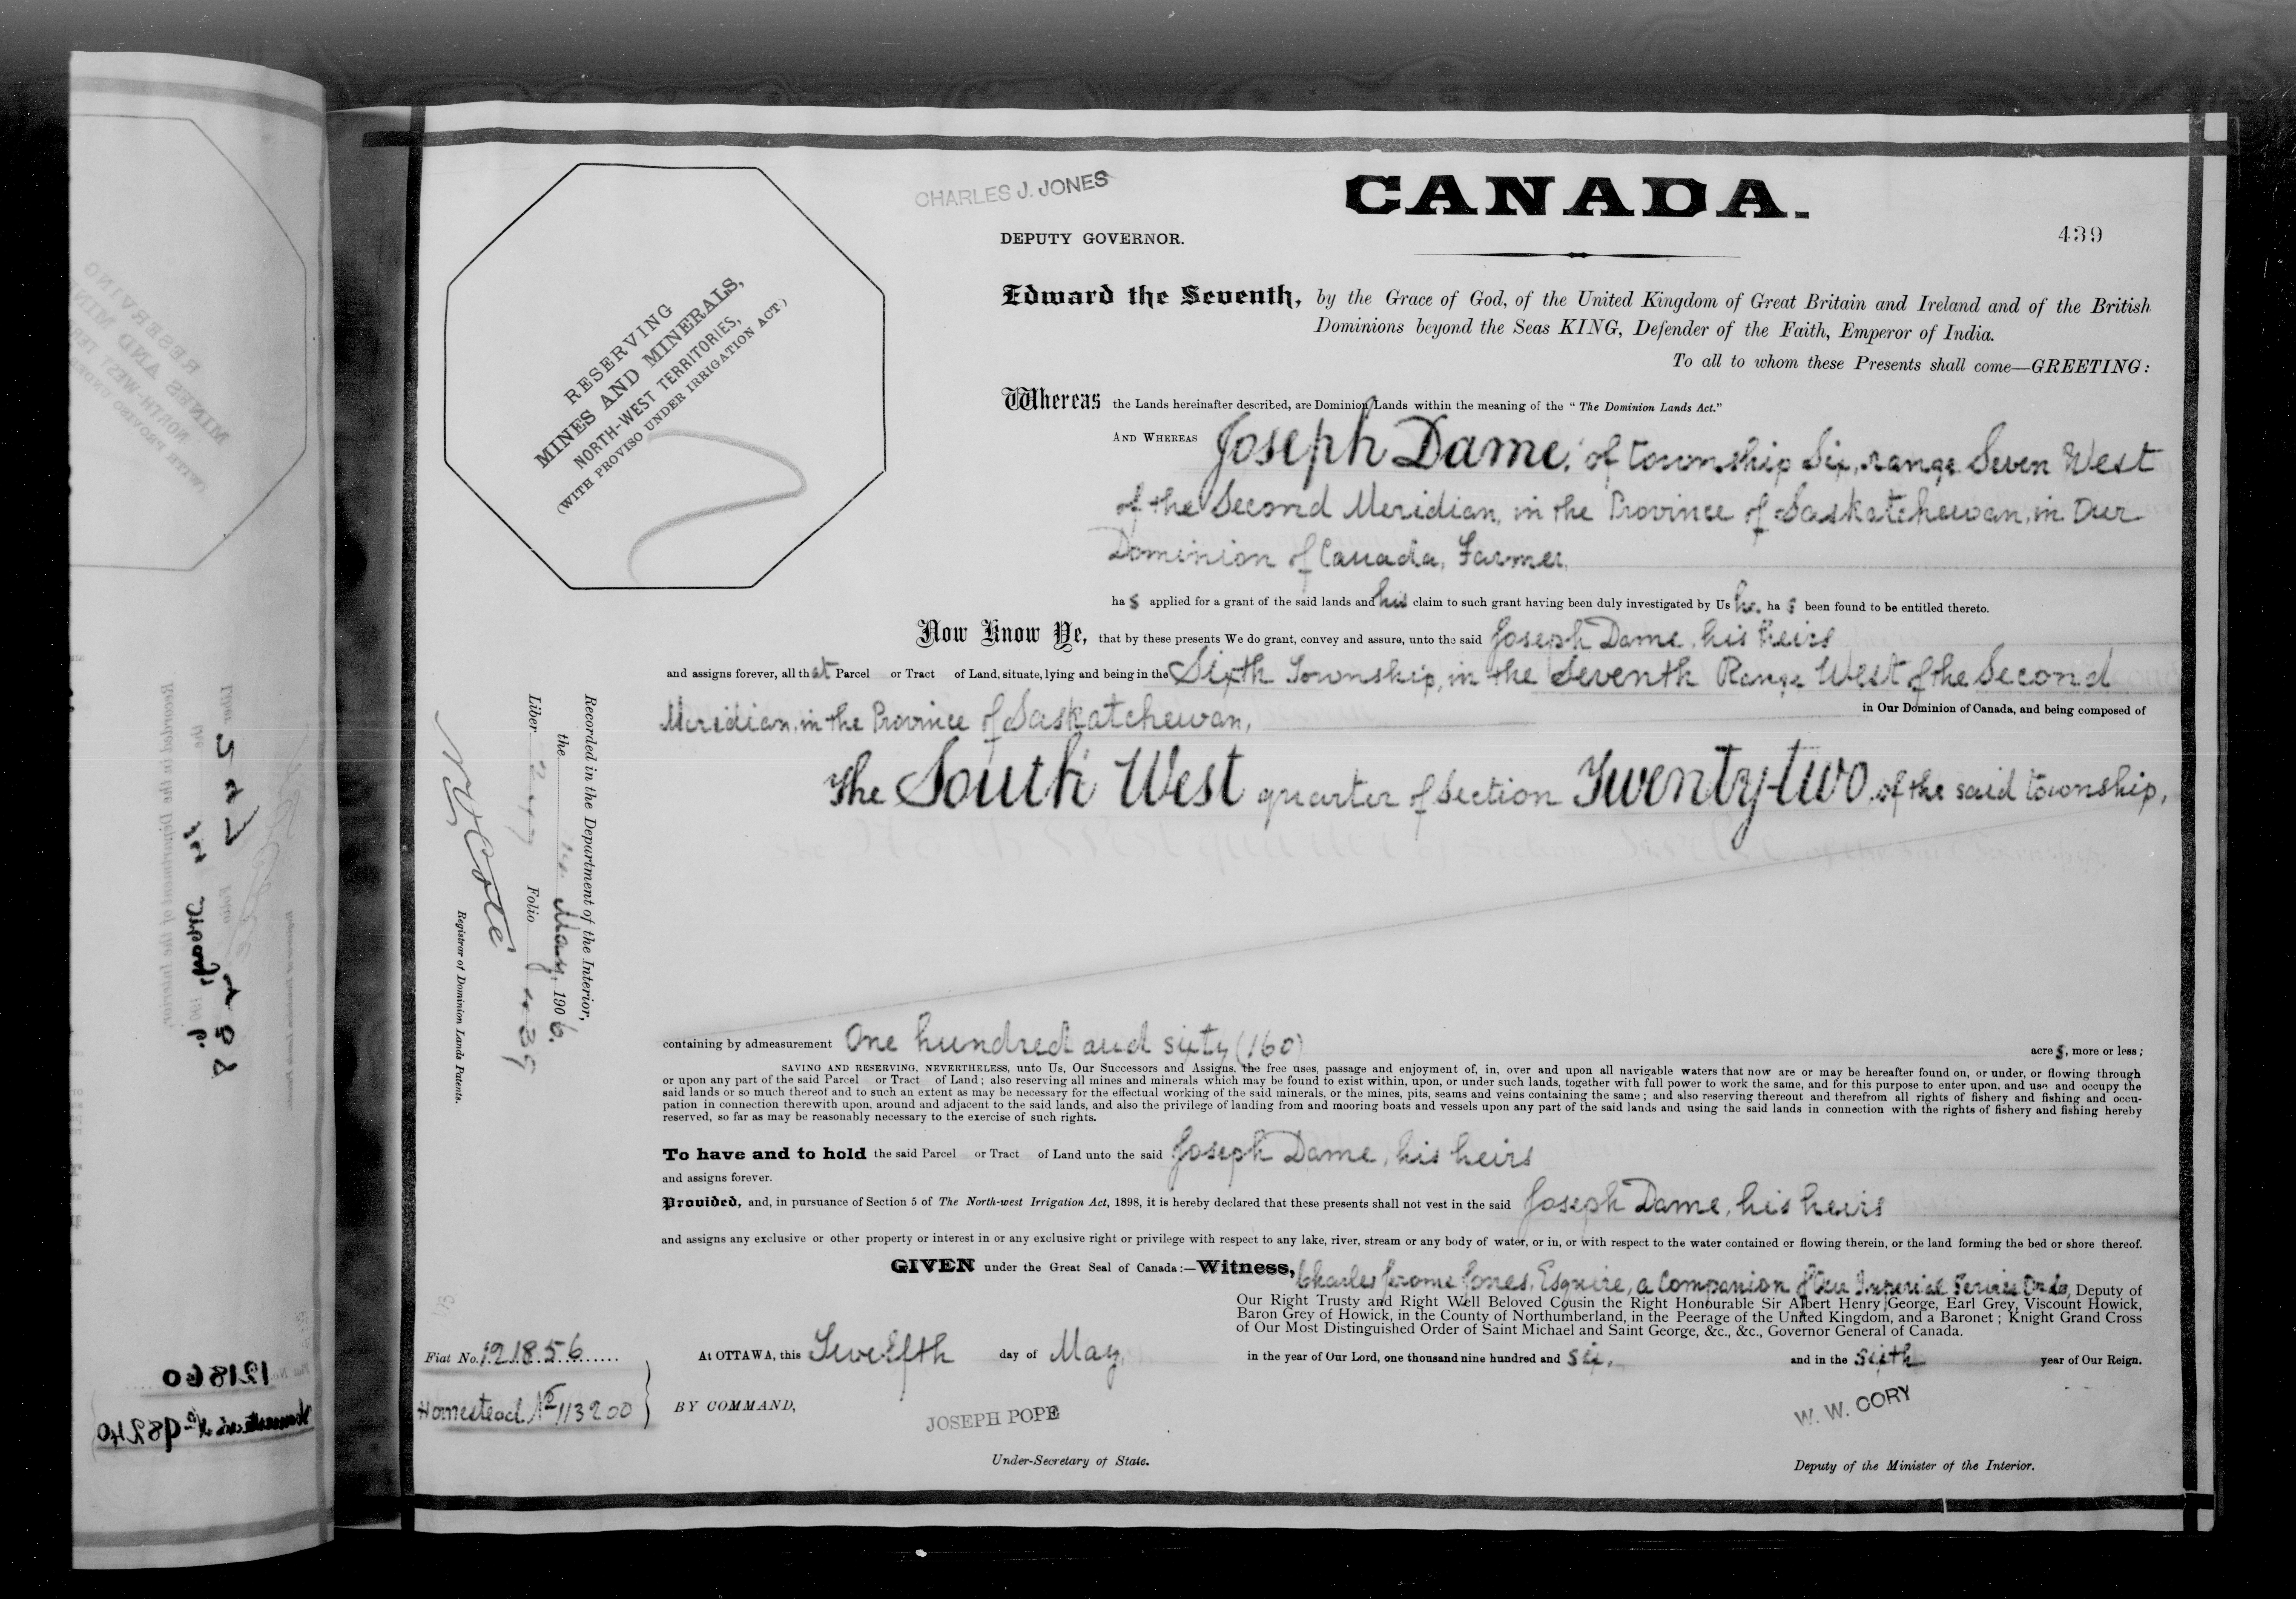 CHARLES J. JONES
CANADA.
DEPUTY GOVERNOR.
439
RESERVING
MINES AND MINERALS,
NORTH-WEST TERRITORIES,
(WITH PROVISO UNDER IRRIGATION ACT.)
Edward the Seventh, by the Grace of God, of the United Kingdom of Great Britain and Ireland and of the British
Dominions beyond the Seas KING, Defender of the Faith, Emperor of India.
To all to whom these Presents shall come—GREETING:
Whereas the Lands hereinafter described, are Dominion Lands within the meaning of the "The Dominion Lands Act."
AND WHEREAS Joseph Dame, of township Six, range Seven West
of the Second Meridian, in the Province of Saskatchewan, in Our
Dominion of Canada, Farmer,
has applied for a grant of the said lands and his claim to such grant having been duly investigated by Us he has been found to be entitled thereto.
Now Know Ye, that by these presents We do grant, convey and assure, unto the said Joseph Dame, his heirs
and assigns forever, all that Parcel or Tract of Land, situate, lying and being in the Sixth Township, in the Seventh Range West of the Second
Meridian, in the Province of Saskatchewan,
in Our Dominion of Canada, and being composed of
The South West quarter of Section Twenty-two, of the said township,
containing by admeasurement One hundred and sixty (160)
acres, more or less;
SAVING AND RESERVING, NEVERTHELESS, unto Us, Our Successors and Assigns, the free uses, passage and enjoyment of, in, over and upon all navigable waters that now are or may be hereafter found on, or under, or flowing through
or upon any part of the said Parcel or Tract of Land; also reserving all mines and minerals which may be found to exist within, upon, or under such lands, together with full power to work the same, and for this purpose to enter upon, and use and occupy the
said lands or so much thereof and to such an extent as may be necessary for the effectual working of the said minerals, or the mines, pits, seams and veins containing the same; and also reserving thereout and therefrom all rights of fishery and fishing and occu-
pation in connection therewith upon, around and adjacent to the said lands, and also the privilege of landing from and mooring boats and vessels upon any part of the said lands and using the said lands in connection with the rights of fishery and fishing hereby
reserved, so far as may be reasonably necessary to the exercise of such rights.
To have and to hold the said Parcel or Tract of Land unto the said Joseph Dame, his heirs
and assigns forever.
Provided, and, in pursuance of Section 5 of The North-west Irrigation Act, 1898, it is hereby declared that these presents shall not vest in the said Joseph Dame, his heirs
and assigns any exclusive or other property or interest in or any exclusive right or privilege with respect to any lake, river, stream or any body of water, or in, or with respect to the water contained or flowing therein, or the land forming the bed or shore thereof.
GIVEN under the Great Seal of Canada:—Witness, Charles Jerome Jones, Esquire, a Companion of the Imperial Service Order, Deputy of
Our Right Trusty and Right Well Beloved Cousin the Right Honourable Sir Albert Henry George, Earl Grey, Viscount Howick,
Baron Grey of Howick, in the County of Northumberland, in the Peerage of the United Kingdom, and a Baronet; Knight Grand Cross
of Our Most Distinguished Order of Saint Michael and Saint George, &c., &c., Governor General of Canada.
At OTTAWA, this Twelfth day of May, in the year of Our Lord, one thousand nine hundred and six, and in the sixth year of Our Reign.
BY COMMAND,
JOSEPH POPE
Under-Secretary of State.
W. W. CORY
Deputy of the Minister of the Interior.
Fiat No. 121856
Homestead No 113200
Recorded in the Department of the Interior,
the May, 1906.
Liber 247 Folio 439
N. O. Coté
Registrar of Dominion Lands Patents.
121860
Homestead No 98240